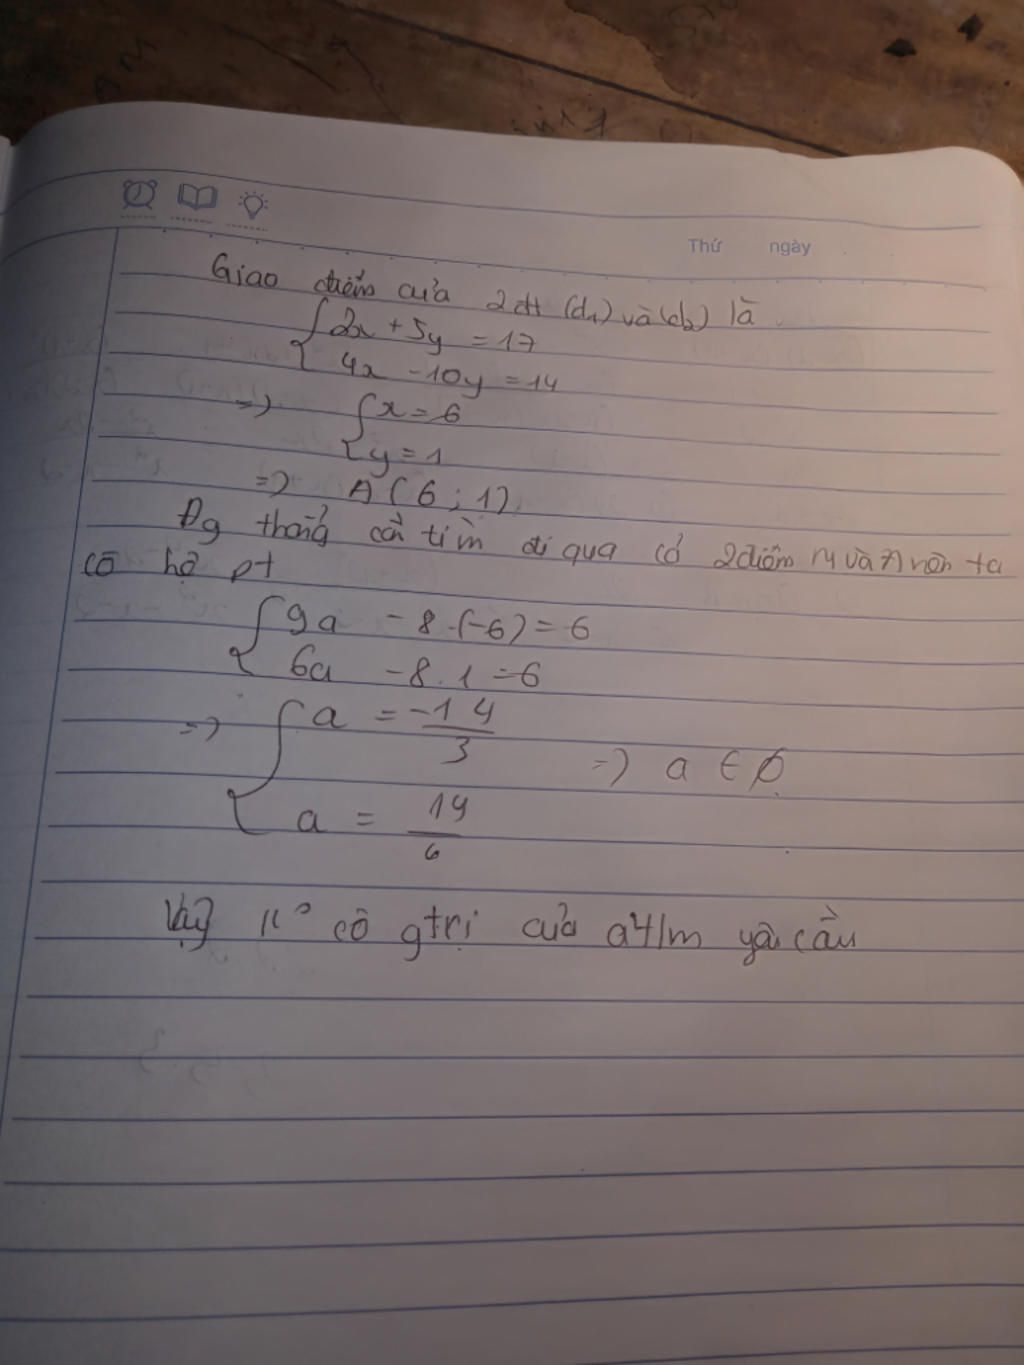 Thứ ngày
Giao điểm của 2 đt (d1) và (d2) là
{2x + 5y = 17
{4x - 10y = 14
=> {x = 6
{y = 1
=> A (6 ; 1)
Đg thẳng cần tìm đi qua cả 2 điểm M và A nên ta
có hệ pt
{9a - 8.(-6) = 6
{6a - 8.1 = 6
=> {a = -14/3 => a ∈ ∅
{a = 14/6
Vậy k° có gtrị của a t/m yêu cầu